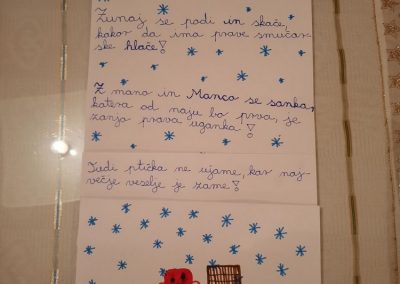 Zunaj se podi in skače,
kakor da ima prave smučar-
ske hlače!
Z mano in Manco se sanka,
katera od naju bo prva, je
zanjo prava uganka!
Tudi ptička ne ujame, kar naj-
večje veselje je zame!